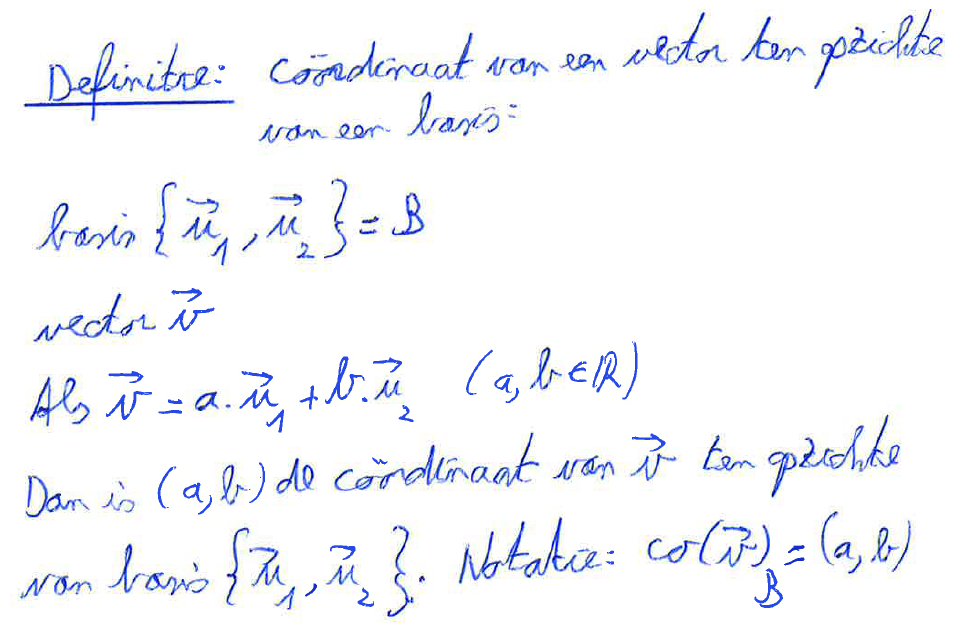 Definitie: coördinaat van een vector ten opzichte
van een basis:
basis {u⃗₁, u⃗₂} = B
vector v⃗
Als v⃗ = a.u⃗₁ + b.u⃗₂ (a, b ∈ ℝ)
Dan is (a, b) de coördinaat van v⃗ ten opzichte
van basis {u⃗₁, u⃗₂}. Notatie: co(v⃗)_B = (a, b)